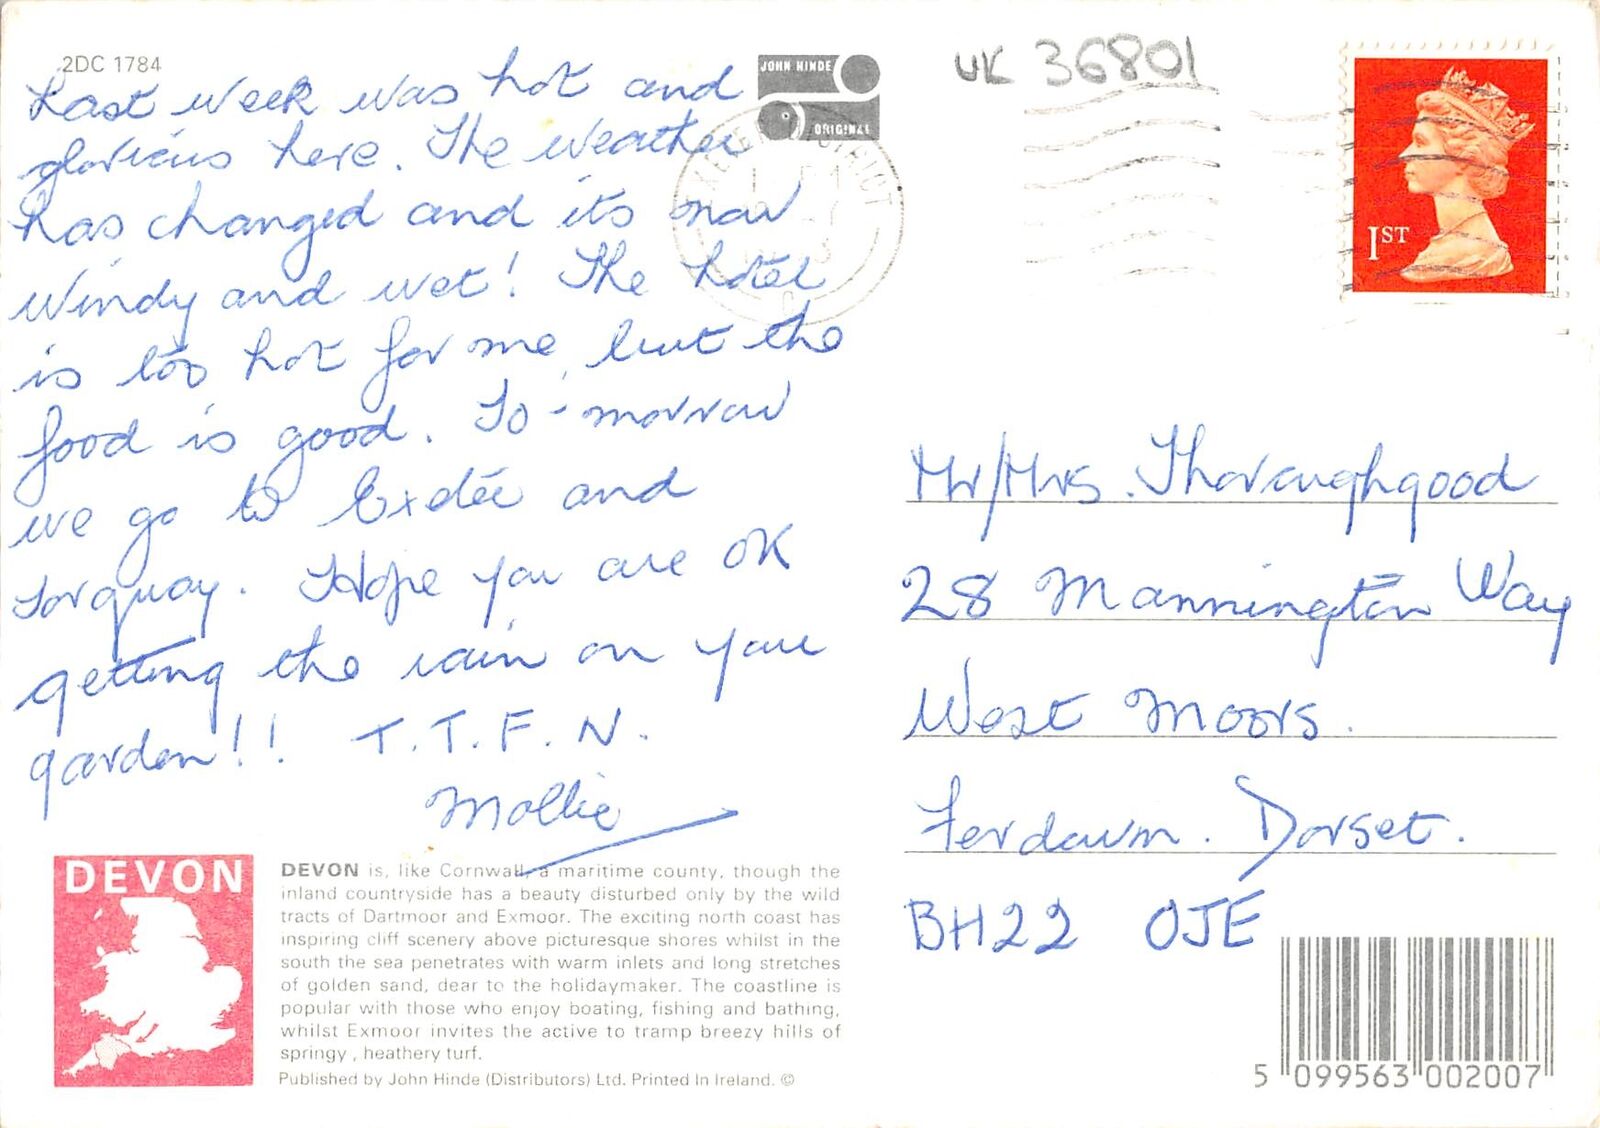 2DC 1784
Last week was hot and
glorious here. The weather
has changed and its now
windy and wet! The hotel
is too hot for me, but the
food is good. To-morrow
we go to Exeter and
Torquay. Hope you are OK
getting the rain on you
garden!! T.T.F.N.
Mollie
DEVON
DEVON is, like Cornwall, a maritime county, though the
inland countryside has a beauty disturbed only by the wild
tracts of Dartmoor and Exmoor. The exciting north coast has
inspiring cliff scenery above picturesque shores whilst in the
south the sea penetrates with warm inlets and long stretches
of golden sand, dear to the holidaymaker. The coastline is
popular with those who enjoy boating, fishing and bathing,
whilst Exmoor invites the active to tramp breezy hills of
springy, heathery turf.
Published by John Hinde (Distributors) Ltd. Printed In Ireland. ©
JOHN HINDE
ORIGINAL
UK 36801
1ST
Mr/Mrs. Thoroughgood
28 Mannington Way
West Moors.
Ferdown. Dorset.
BH22 OJE
5 099563 002007